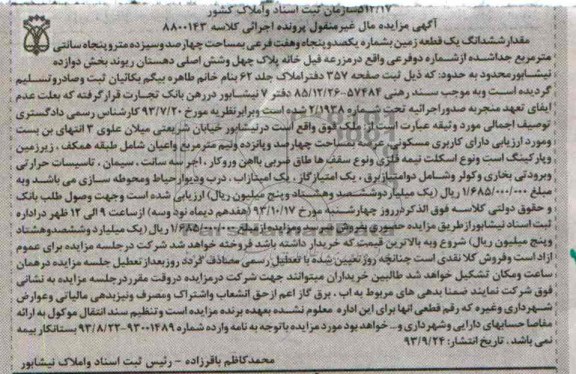 ۵۱۲/۱۷سازمان ثبت اسناد واملاک کشور
آگهی مزایده مال غیرمنقول پرونده اجرائی کلاسه ۸۸۰۰۱۴۳
مقدارششدانگ یک قطعه زمین بشماره یکصدوپنجاه وهفت فرعی بمساحت چهارصدوسیزده متروپنجاه سانتی
مترمربع جداشده ازشماره دوفرعی واقع درمزرعه فیل خانه پلاک چهل وشش اصلی دهستان ریوند بخش دوازده
نیشابورمحدود به حدود: که ذیل ثبت صفحه ۳۵۷ دفتراملاک جلد ۶۲ بنام خانم طاهره بیگم بکائیان ثبت وصادروتسلیم
گردیده است وبه موجب سند رهنی ۵۷۴۸۴-۸۵/۱۲/۲۶ دفتر ۷ نیشابور دررهن بانک تجارت قرارگرفته که بعلت عدم
ایفای تعهد منجربه صدوراجرائیه تحت شماره ۲/۱۹۳۸ شده است وبرابرنظریه مورخ ۹۳/۷/۲۰ کارشناس رسمی دادگستری
توصیف اجمالی مورد وثیقه عبارت است از: ملک فوق واقع است درنیشابور خیابان شریعتی میلان علوی ۳ انتهای بن بست
ومورد ارزیابی دارای کاربری مسکونی، عرصه بمساحت چهارصد وپانزده ونیم مترمربع واعیان شامل طبقه همکف، زیرزمین
وپارکینگ است ونوع اسکلت نیمه فلزی ونوع سقف ها طاق ضربی باآهن وروکار، آجر سه سانت، سیمان، تاسیسات حرارتی
وبرودتی بخاری وکولر وشامل دوامتیازبرق، یک امتیازگاز، یک امتیازآب، درب ودیوارحیاط ومحوطه سازی می باشد وبه
مبلغ ۱/۶۸۵/۰۰۰/۰۰۰ ریال (یک میلیاردوششصد وهشتاد وپنج میلیون ریال) ارزیابی شده است وجهت وصول طلب بانک
و حقوق دولتی کلاسه فوق الذکردرروز چهارشنبه مورخ ۹۳/۱۰/۱۷ (هفدهم دیماه نود وسه) ازساعت ۹ الی ۱۲ ظهر دراداره
ثبت اسناد نیشابورازطریق مزایده حضوری بفروش میرسد ومزایده ازمبلغ ۱/۶۸۵/۰۰۰/۰۰۰ریال (یک میلیارد وششصدوهشتاد
وپنج میلیون ریال) شروع وبه بالاترین قیمت که خریدار داشته باشد فروخته خواهد شد شرکت درجلسه مزایده برای عموم
آزاد است وفروش کلا نقدی است چنانچه روزتعیین شده با تعطیل رسمی مصادف گردد روزبعدازتعطیل جلسه مزایده درهمان
ساعت ومکان تشکیل خواهد شد طالبین خریداران میتوانند جهت شرکت درمزایده دروقت مقرردرجلسه مزایده به نشانی
فوق شرکت نمایند ضمنا بدهی های مربوط به آب، برق گاز اعم ازحق انشعاب واشتراک ومصرف ونیزبدهی مالیاتی وعوارض
شهرداری وغیره که رقم قطعی آنها برای این اداره معلوم نشده بعهده برنده مزایده است وتنظیم سند انتقال موکول به ارائه
مفاصا حسابهای دارایی وشهرداری و... خواهد بود مورد مزایده باتوجه به نامه وارده شماره ۹۳۰۰۱۴۸۹-۹۳/۸/۲۳ بستانکاربیمه
نمی باشد. تاریخ انتشار: ۹۳/۹/۲۴
محمدکاظم باقرزاده - رئیس ثبت اسناد واملاک نیشابور